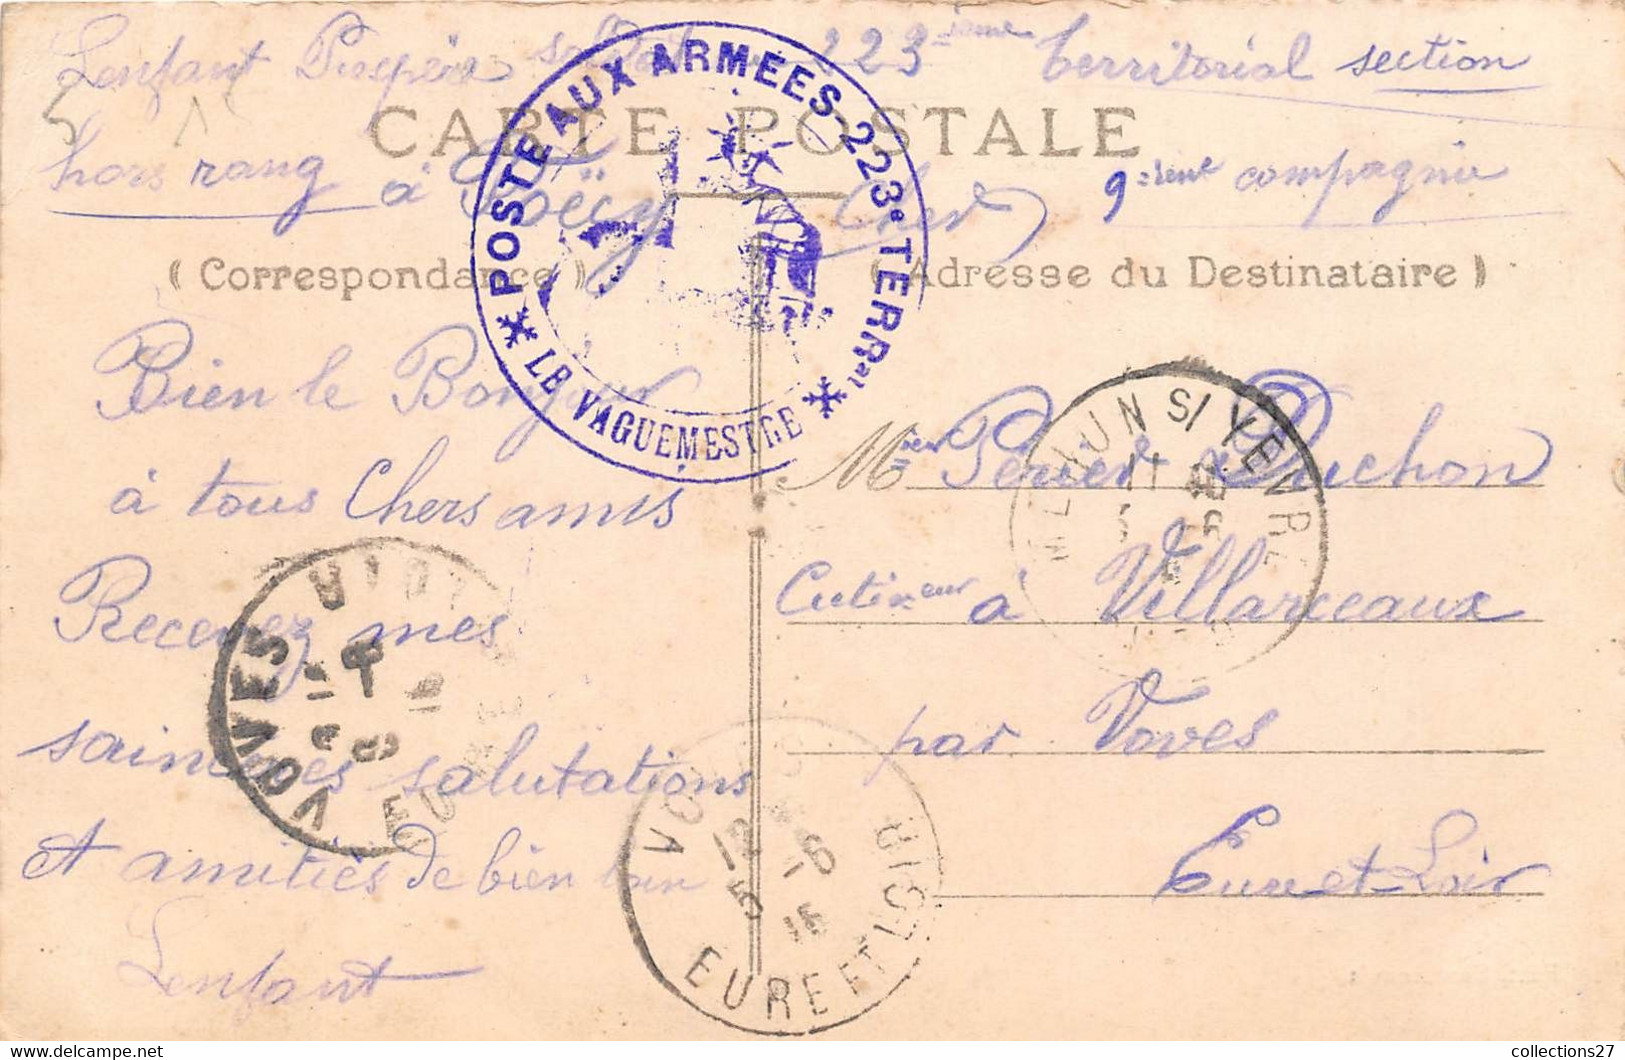 Lenfant soldat 223ième territorial section
hors rang à Foëcy Cher 9ième compagnie
CARTE POSTALE
( Correspondance )
( Adresse du Destinataire )
POSTE AUX ARMEES 223e TERRal
LE VAGUEMESTRE
Bien le Bonjour
à tous Chers amis
Recevez mes
sincères salutations
et amitiés de bien loin
Lenfant
Perier Puchon
à Villarceaux
par Voves
Eure et Loir
MEHUN S/ YEVRE
11 40
5 -6
VOVES
EURE ET LOIR
VOVES
EURE ET LOIR
12
5 -6
15
collections27